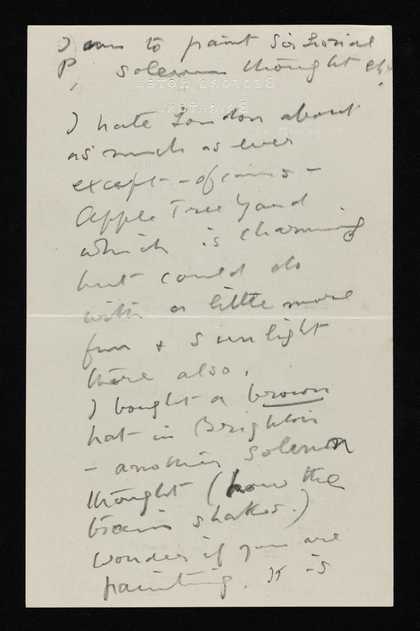 I am to paint Sir Lionel
P, solemn thought eh.
I hate London about
as much as ever
except - of course -
Apple Tree Yard
which is charming
but could do
with a little more
fun & sunlight
there also.
I bought a brown
hat in Brighton
- another solemn
thought (how the
train shakes.)
Wonder if you are
painting. It is